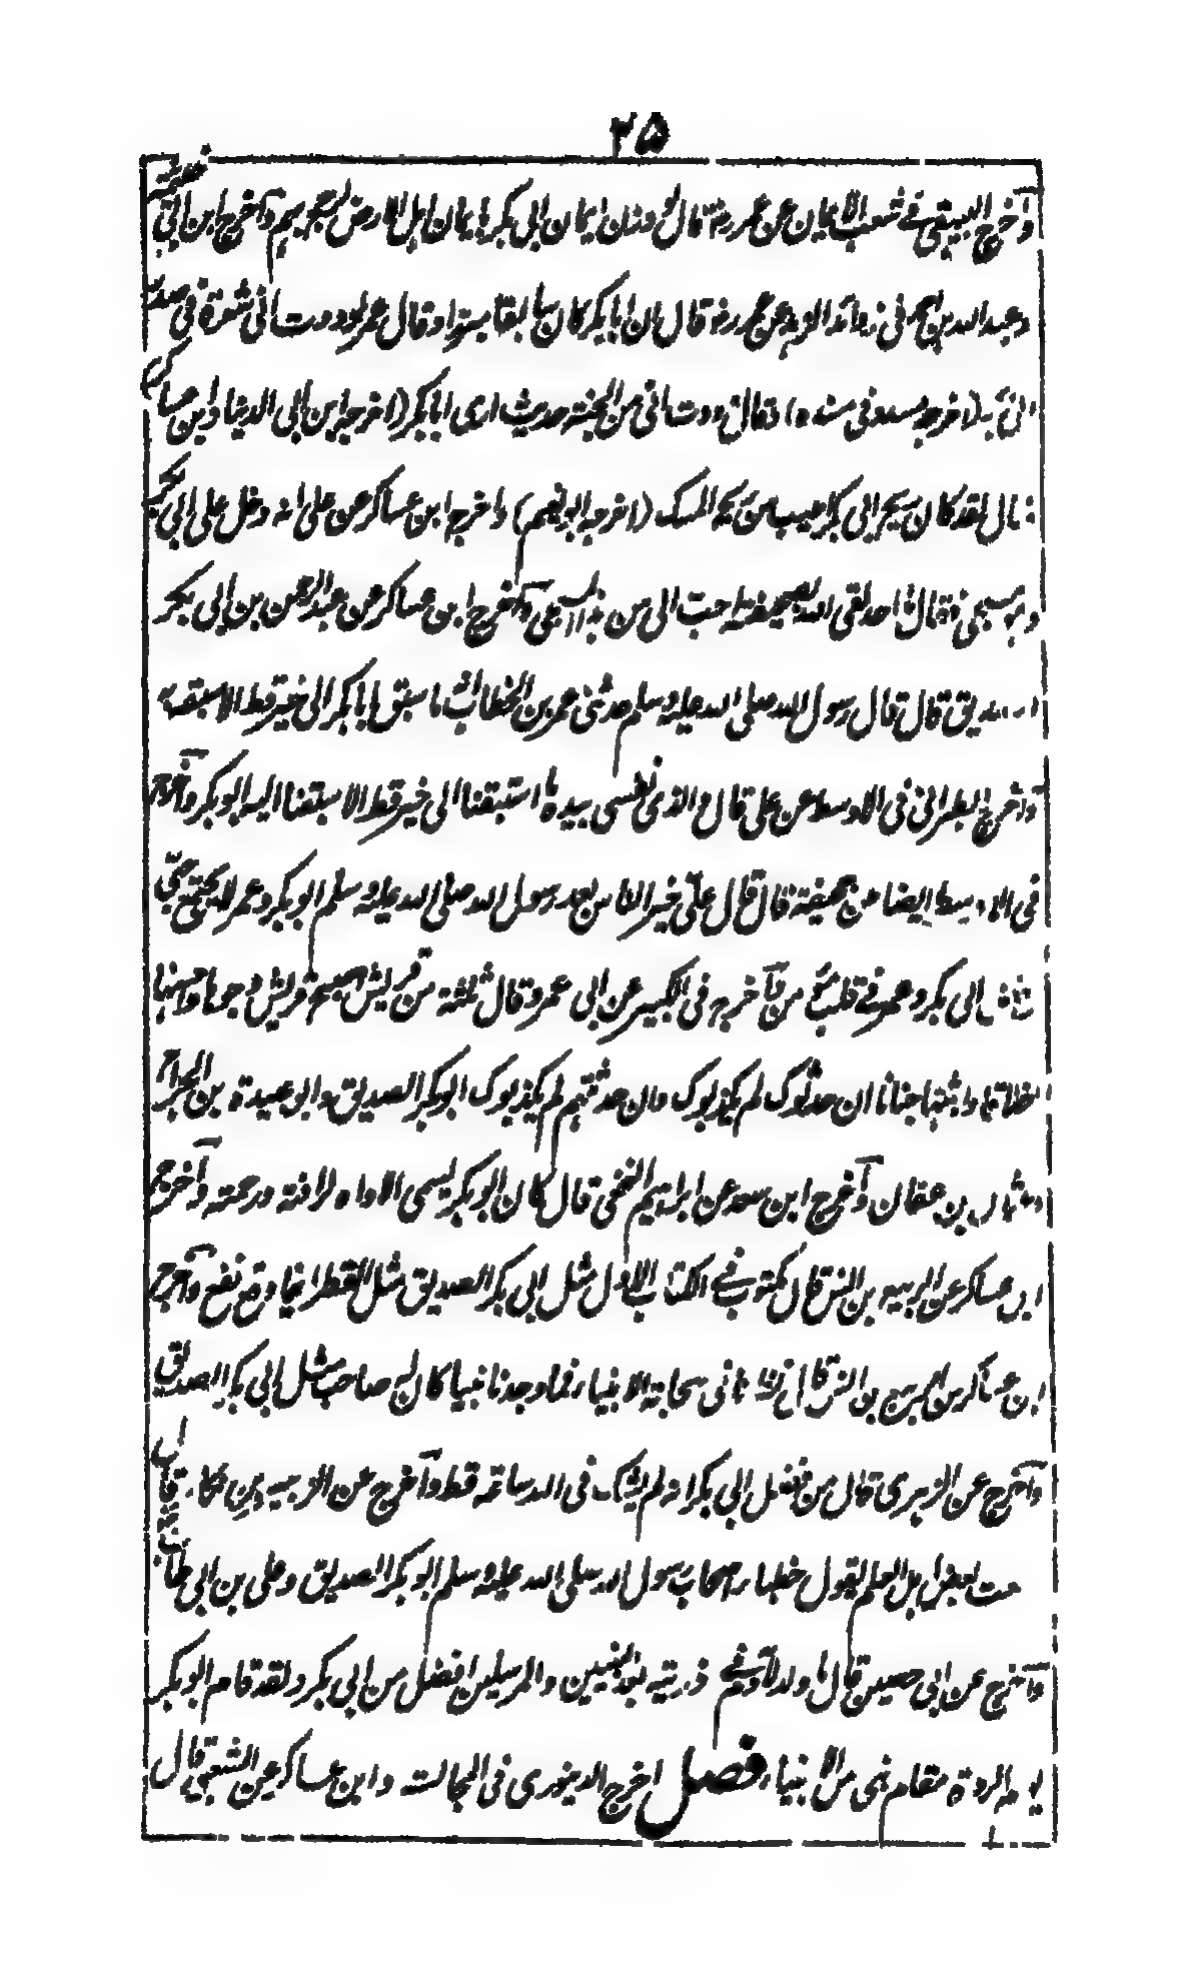 ۲۵
وأخرج البيهقي في شعب الايمان عن عمر رض قال لو وزن ايمان ابي بكر بايمان اهل الارض لرجح بهم وأخرج ابن ابي خيثمة
وعبد الله بن احمد في زوائد الزهد عن عمر رض قال ان ابا بكر كان سابقا مبرزا وقال عمر لوددت اني شعرة في صدر
ابي بكر (اخرجه مسدد في مسنده) وقال وددت اني من الجنة حيث ارى ابا بكر (اخرجه ابن ابي الدنيا وابن عساكر)
قال لقد كان ريح ابي بكر اطيب من ريح المسك (اخرجه ابو نعيم) واخرج ابن عساكر عن علي انه دخل على ابي بكر
وهو مسجى فقال ما احد لقي الله بصحيفته احب الي من هذا المسجى وأخرج ابن عساكر عن عبد الرحمن بن ابي بكر
الصديق قال قال رسول الله صلى الله عليه وسلم حدثني عمر بن الخطاب انه ما سبق ابا بكر الى خير قط الا سبقه
وأخرج الطبراني في الاوسط عن علي قال والذي نفسي بيده ما استبقنا الى خير قط الا سبقنا اليه ابو بكر وأخرج
في الاوسط ايضا عن جحيفة قال قال علي خير الناس بعد رسول الله صلى الله عليه وسلم ابو بكر وعمر لا يجتمع حبي
وبغض ابي بكر وعمر في قلب مؤمن وأخرج في الكبير عن ابي عمرو قال ثلثة من قريش اصبح قريش وجوها واحسنها
اخلاقا واثبتها جنانا ان حدثوك لم يكذبوك وان حدثتهم لم يكذبوك ابو بكر الصديق وابو عبيدة بن الجراح
وعثمان بن عفان وأخرج ابن سعد عن ابراهيم النخعي قال كان ابو بكر يسمى الاواه لرافته ورحمته وأخرج
ابن عساكر عن الربيع بن انس قال مكتوب في الكتاب الاول مثل ابي بكر الصديق مثل القطر اينما وقع نفع وأخرج
ابن عساكر عن الربيع بن انس قال نظرنا في صحابة الانبياء فما وجدنا نبيا كان له صاحب مثل ابي بكر الصديق
وأخرج عن الزهري قال من فضل ابي بكر انه لم يشك في الله ساعة قط وأخرج عن الزبير بن بكار قال
سمعت بعض اهل العلم يقول خطباء اصحاب رسول الله صلى الله عليه وسلم ابو بكر الصديق وعلي بن ابي طالب
وأخرج عن ابي حصين قال ما ولد لآدم في ذريته بعد النبيين والمرسلين افضل من ابي بكر ولقد قام ابو بكر
يوم الردة مقام نبي من الانبياء فصل اخرج الدينوري في المجالسة وابن عساكر عن الشعبي قال